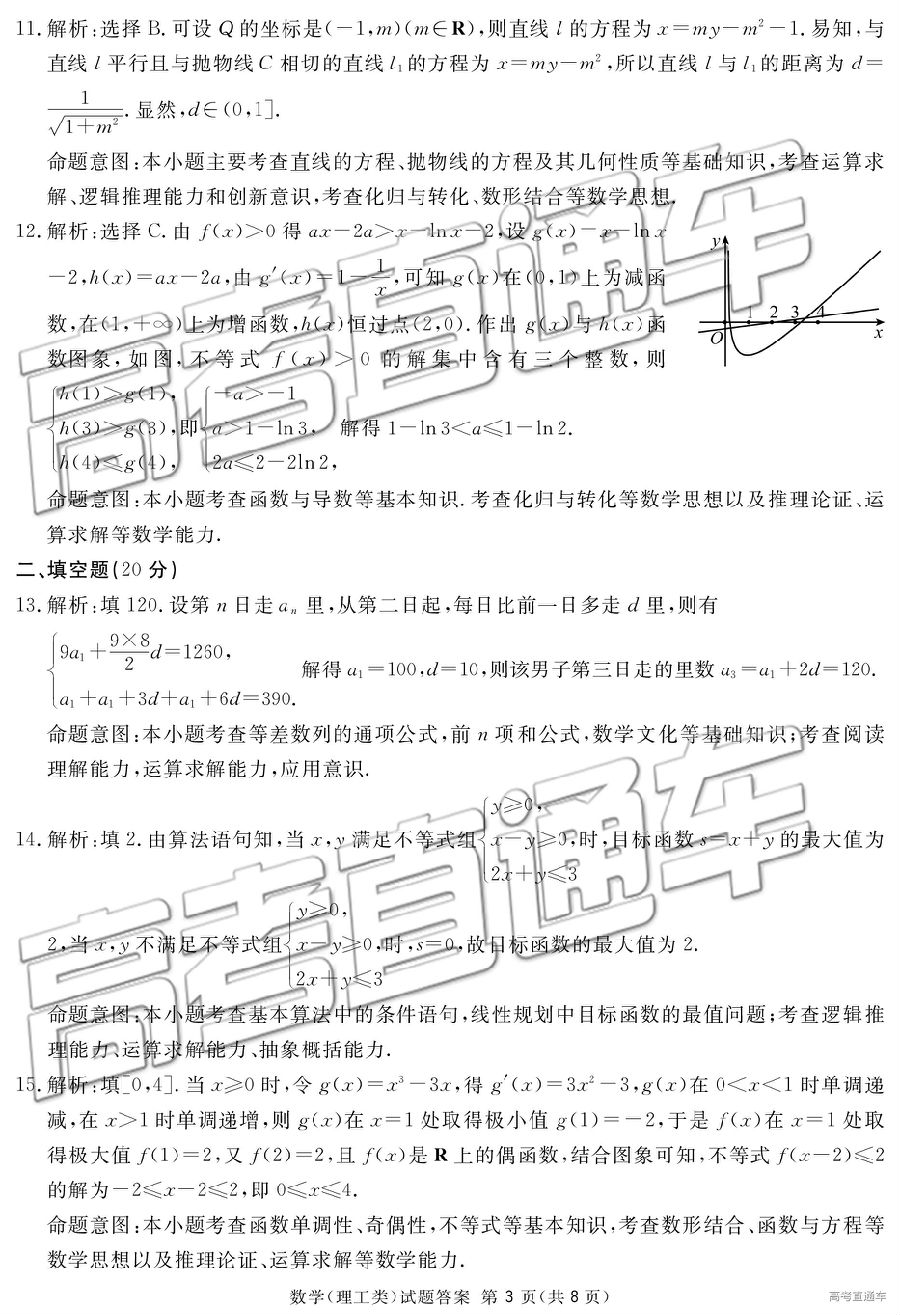 11.解析:选择 B.可设 Q 的坐标是(-1,m)(m∈R),则直线 l 的方程为 x=my-m²-1.易知,与
直线 l 平行且与抛物线 C 相切的直线 l₁ 的方程为 x=my-m²,所以直线 l 与 l₁ 的距离为 d=
1/√(1+m²).显然,d∈(0,1].
命题意图:本小题主要考查直线的方程、抛物线的方程及其几何性质等基础知识,考查运算求
解、逻辑推理能力和创新意识,考查化归与转化、数形结合等数学思想.
12.解析:选择 C.由 f(x)>0 得 ax-2a>x-lnx-2,设 g(x)=x-lnx
-2,h(x)=ax-2a,由 g′(x)=1-1/x,可知 g(x)在(0,1)上为减函
数,在(1,+∞)上为增函数,h(x)恒过点(2,0).作出 g(x)与 h(x)函
数图象,如图,不等式 f(x)>0 的解集中含有三个整数,则
y
O
1 2 3 4
x
{h(1)>g(1), {-a>-1
h(3)>g(3),即 a>1-ln3, 解得 1-ln3<a≤1-ln2.
h(4)≤g(4), 2a≤2-2ln2,
命题意图:本小题考查函数与导数等基本知识.考查化归与转化等数学思想以及推理论证、运
算求解等数学能力.
二、填空题(20 分)
13.解析:填 120.设第 n 日走 aₙ 里,从第二日起,每日比前一日多走 d 里,则有
{9a₁+(9×8)/2 d=1260,
解得 a₁=100,d=10,则该男子第三日走的里数 a₃=a₁+2d=120.
a₁+a₁+3d+a₁+6d=390.
命题意图:本小题考查等差数列的通项公式,前 n 项和公式,数学文化等基础知识;考查阅读
理解能力,运算求解能力,应用意识.
{y≥0,
14.解析:填 2.由算法语句知,当 x,y 满足不等式组 x-y≥0,时,目标函数 s=x+y 的最大值为
2x+y≤3
{y≥0,
2,当 x,y 不满足不等式组 x-y≥0,时,s=0,故目标函数的最大值为 2.
2x+y≤3
命题意图:本小题考查基本算法中的条件语句,线性规划中目标函数的最值问题;考查逻辑推
理能力、运算求解能力、抽象概括能力.
15.解析:填[0,4].当 x≥0 时,令 g(x)=x³-3x,得 g′(x)=3x²-3,g(x)在 0<x<1 时单调递
减,在 x>1 时单调递增,则 g(x)在 x=1 处取得极小值 g(1)=-2,于是 f(x)在 x=1 处取
得极大值 f(1)=2,又 f(2)=2,且 f(x)是 R 上的偶函数,结合图象可知,不等式 f(x-2)≤2
的解为-2≤x-2≤2,即 0≤x≤4.
命题意图:本小题考查函数单调性、奇偶性,不等式等基本知识,考查数形结合、函数与方程等
数学思想以及推理论证、运算求解等数学能力.
数学(理工类)试题答案 第 3 页(共 8 页)
高考直通车
高考直通车
高考直通车